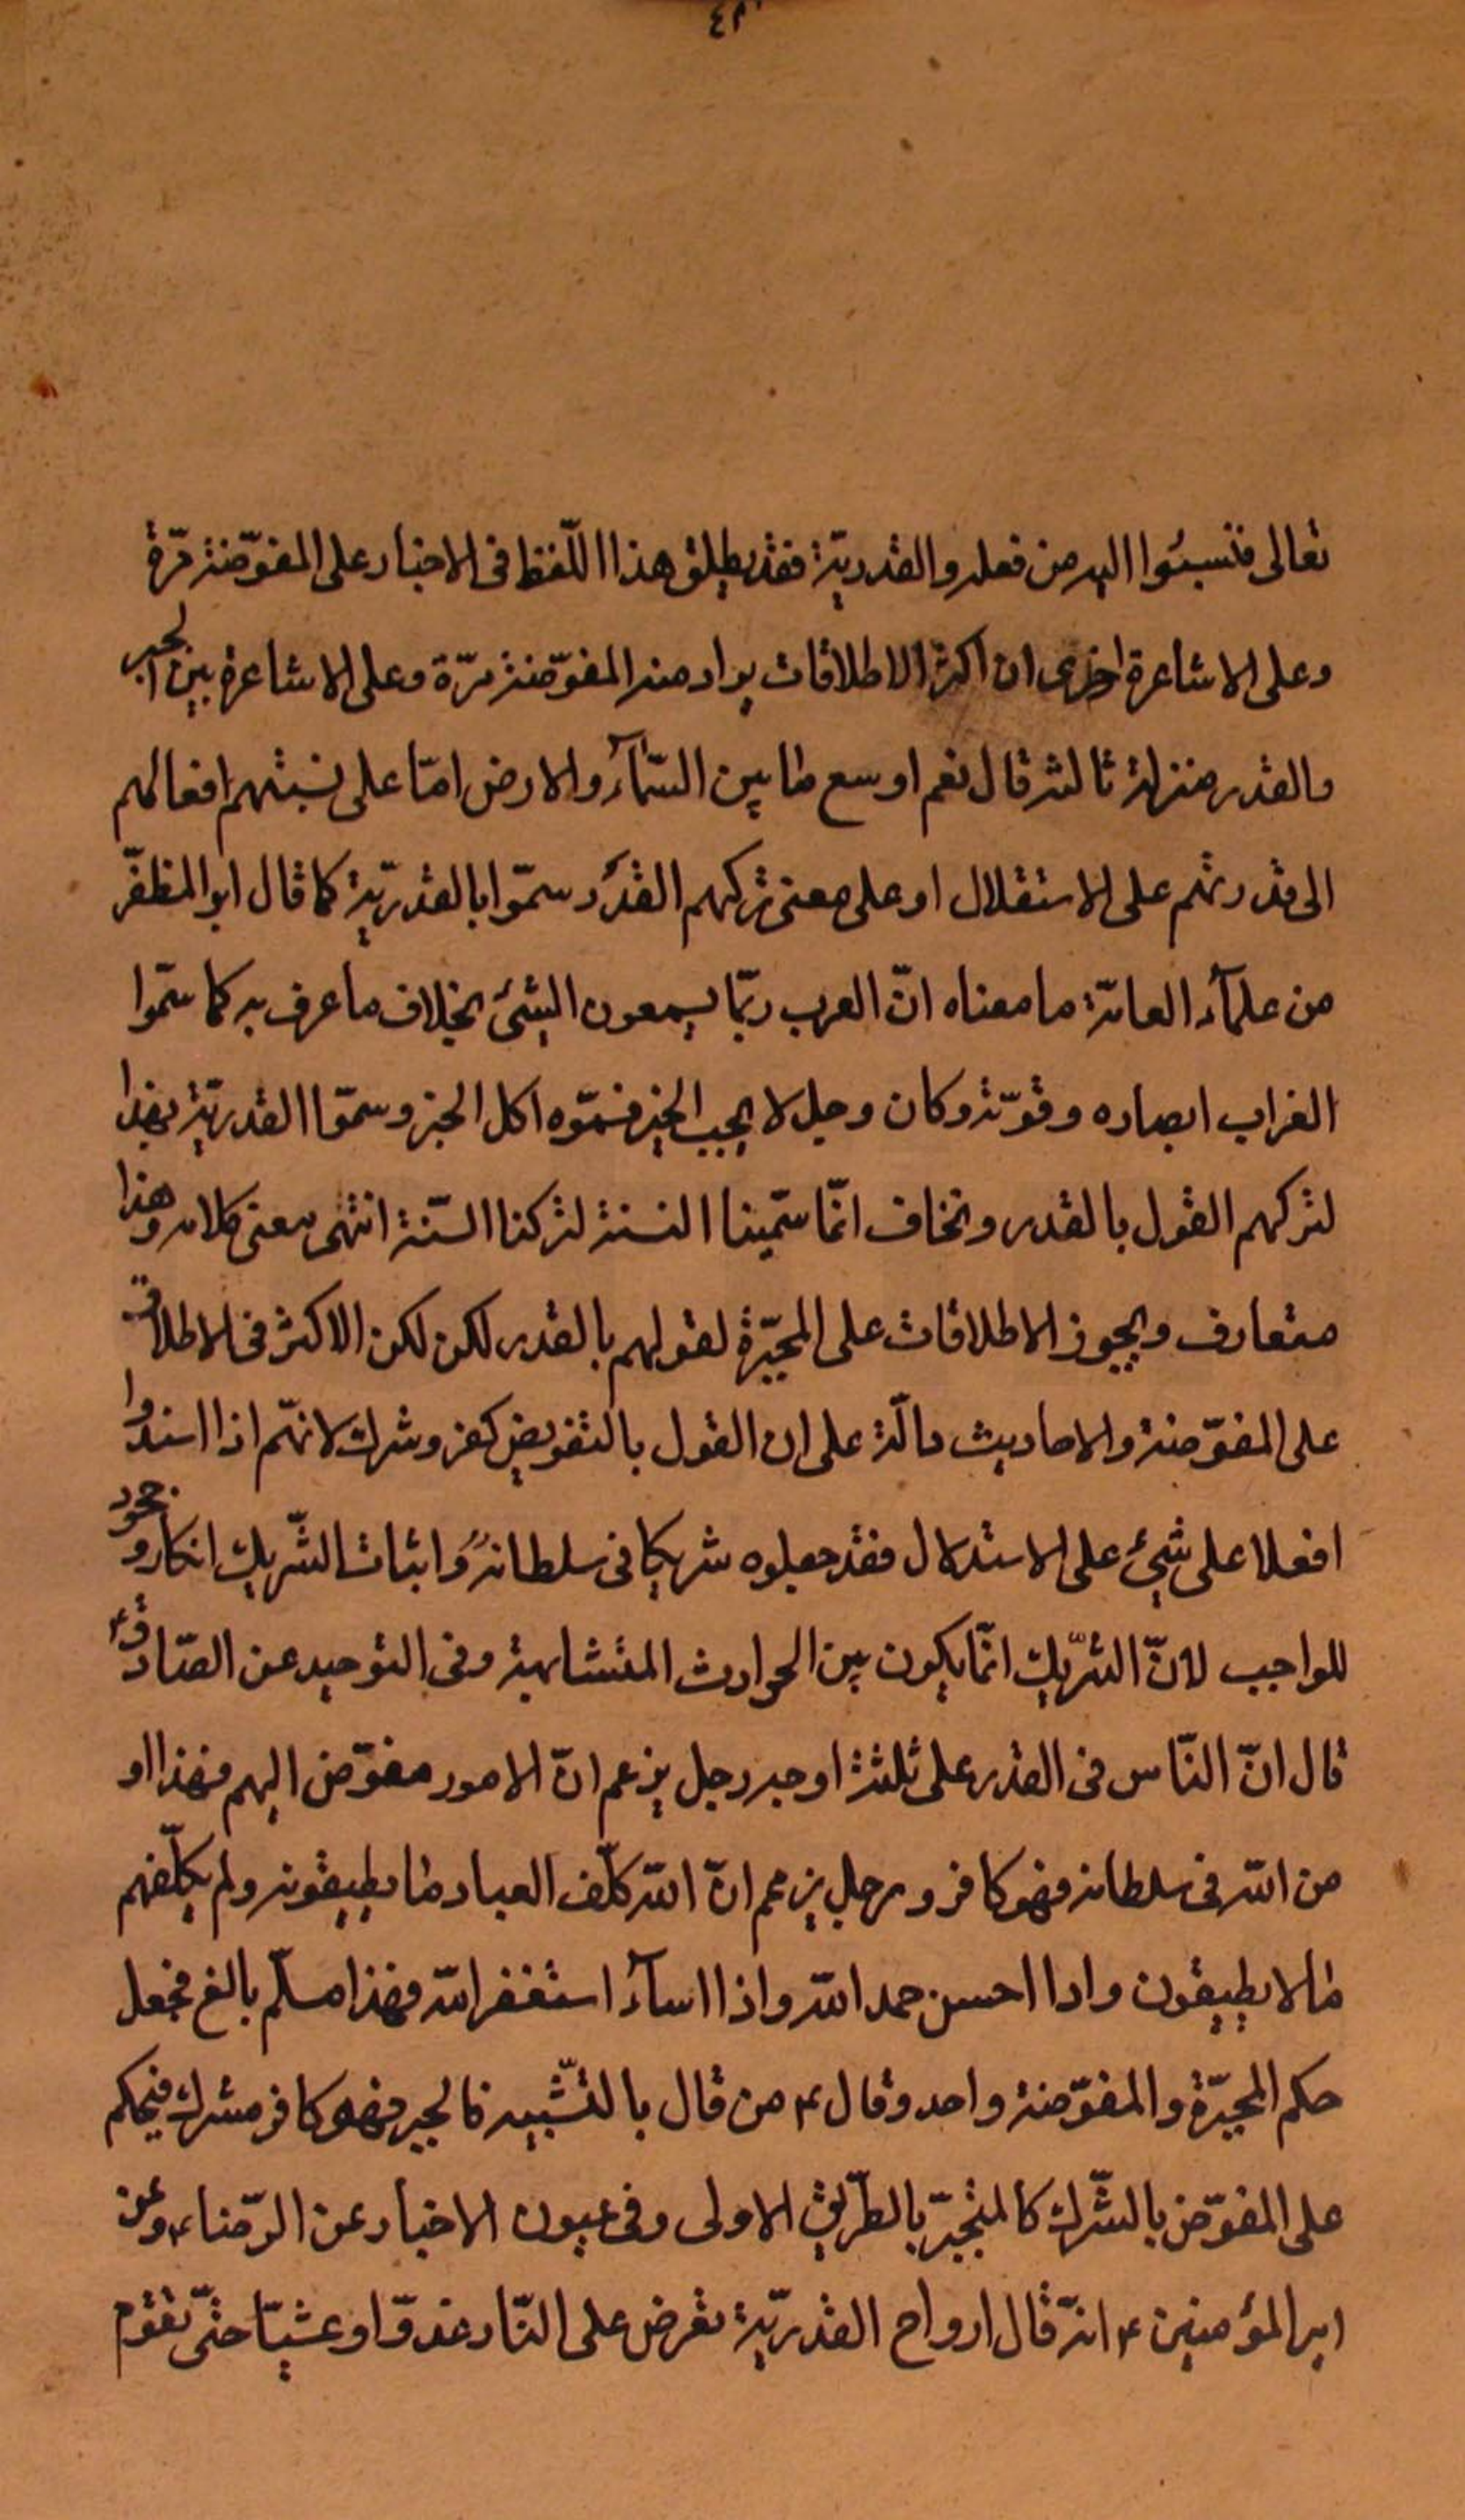 تعالى فنسبوا اليه من فعله والقدريّة فقد يطلق هذا اللّفظ فى الاخبار على المفوّضة مرّة
وعلى الاشاعرة اخرى ان اكثر الاطلاقات يراد منه المفوّضة مرّة وعلى الاشاعرة بين الجبر
والقدر منزلة ثالثه قال نعم اوسع ما بين السّمآء والارض امّا على نسبتهم افعالهم
الى قدرتهم على الاستقلال او على معنى تركهم القدر وسمّوا بالقدريّة كما قال ابو المظفّر
من علمآء العامّة ما معناه انّ العرب ربّما يسمعون الشئ بخلاف ما عرف به كما سمّوا
الغراب ابصاره وقوّته وكان رجل لا يحب الخبز فسمّوه اكل الخبز وسمّوا القدريّة بهذا
لتركهم القول بالقدر ونخاف انّما سمّينا السنة لتركنا السّنة انتهى معنى كلامه وهذا
متعارف ويجوز الاطلاقات على المجبّرة لقولهم بالقدر لكن لكن الاكثر فى الاطلاق
على المفوّضة والاحاديث دالّة على ان القول بالتفويض كفر وشرك لانهّم اذا اسندوا
افعلا على شئ على الاستدلال فقد جعلوه شريكا فى سلطانه واثبات الشّريك انكار وجحود
للواجب لانّ الشّريك انّما يكون بين الحوادث المتشابهة وفى التوحيد عن الصّادق ع
قال انّ النّاس فى القدر على ثلثة اوجه رجل يزعم انّ الامور مفوّض اليهم فهذا او
من الله فى سلطانه فهو كافر ورجل يزعم انّ الله كلّف العباد ما يطيقونه ولم يكلّفهم
ما لا يطيقون واذا احسن حمد الله واذا اسآء استغفر الله فهذا مسلّم بالغ فجعل
حكم المجبّرة والمفوّضة واحد وقال ع من قال بالتّشبيه فالجبر فهو كافر مشرك فيحكم
على المفوّض بالشّرك كالمتجبّر بالطّريق الاولى وفى عيون الاخبار عن الرّضا ع وعن
امير المؤمنين ع انّه قال ارواح القدريّة تعرض على النّار غدوّا وعشيّا حتّى تقوم